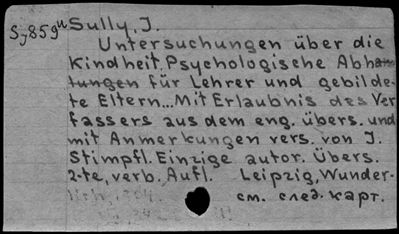 Sj859u Sully, J.
Untersuchungen über die
Kindheit, Psychologische Abhan-
tungen für Lehrer und gebilde-
te Eltern... Mit Erlaubnis des Ver
fassers aus dem eng. übers. und
mit Anmerkungen vers. von J.
Stimpfl. Einzige autor. Übers.
2-te, verb. Aufl. Leipzig, Wunder-
см. след. карт.